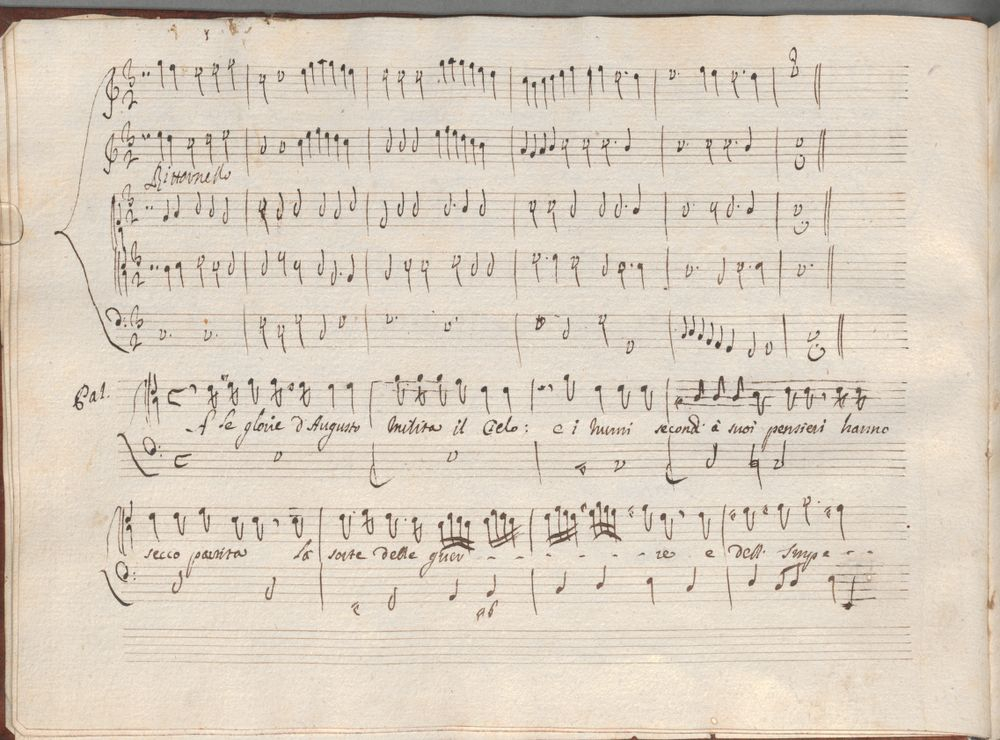 Rittornello
Pal.
A le glorie d'Augusto Milita il Cielo: e i Numi second' à suoi pensieri hanno
secco partita la sorte delle guer - - - - - - re e dell' Impe - -